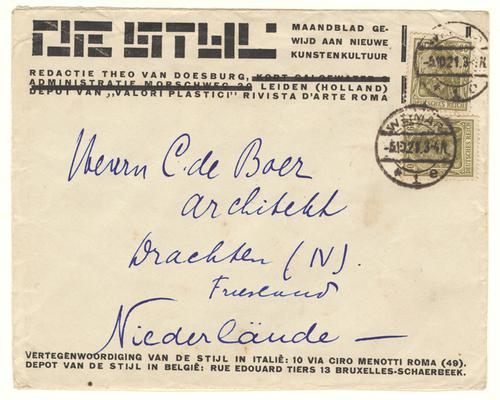 DE STIJL
MAANDBLAD GE-
WIJD AAN NIEUWE
KUNSTENKULTUUR
REDACTIE THEO VAN DOESBURG, KORT GALGEWATER
ADMINISTRATIE MORSCHWEG 20 LEIDEN (HOLLAND)
DEPOT VAN „VALORI PLASTICI" RIVISTA D'ARTE ROMA
WEIMAR
-5.10.21.3-4N.
DEUTSCHES REICH
Herrn C. de Boer
Architekt
Drachten (N).
Friesland
Niederlände —
VERTEGENWOORDIGING VAN DE STIJL IN ITALIË: 10 VIA CIRO MENOTTI ROMA (49).
DEPOT VAN DE STIJL IN BELGIË: RUE EDOUARD TIERS 13 BRUXELLES-SCHAERBEEK.